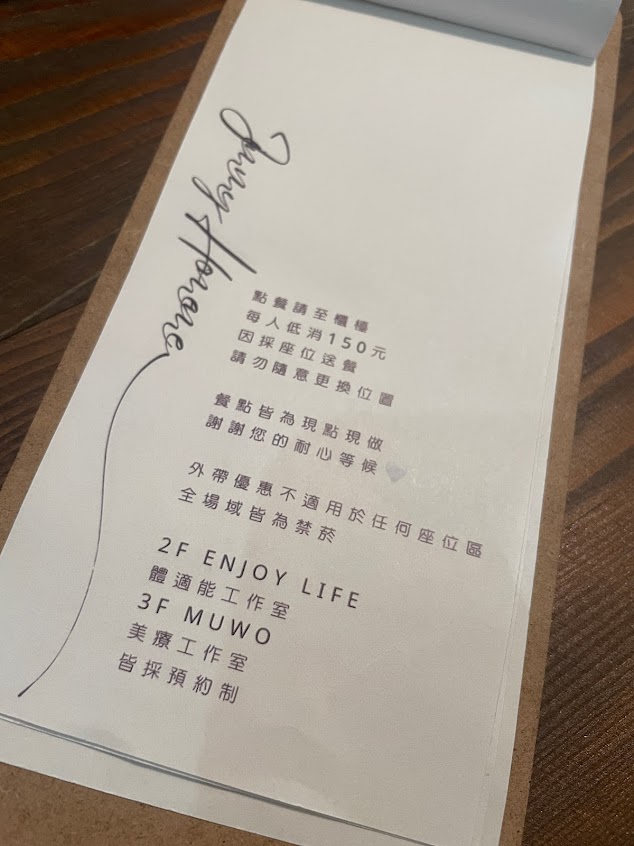 點餐請至櫃檯
每人低消150元
因採座位送餐
請勿隨意更換位置
餐點皆為現點現做
謝謝您的耐心等候
外帶優惠不適用於任何座位區
全場域皆為禁菸
2F ENJOY LIFE
體適能工作室
3F MUWO
美療工作室
皆採預約制